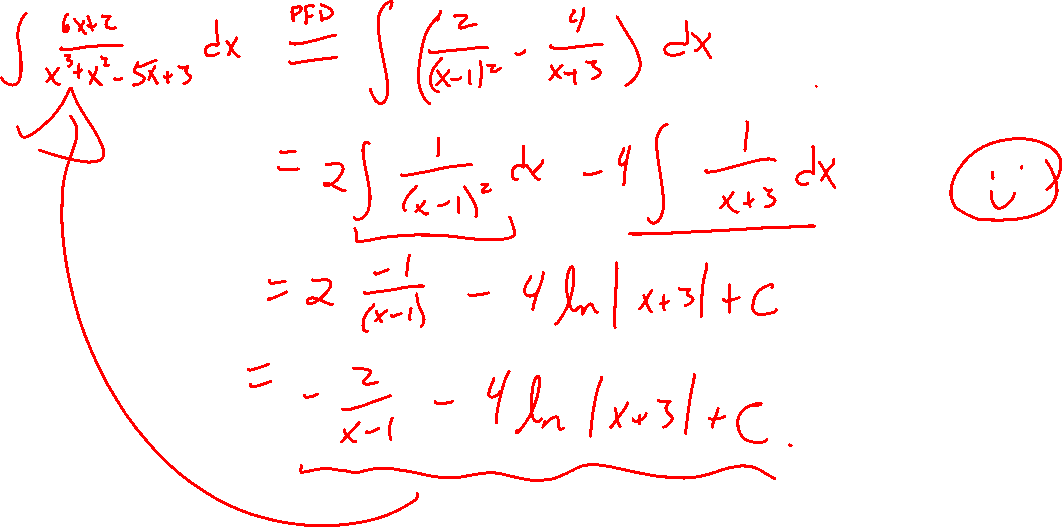 ∫ (6x+2)/(x³+x²-5x+3) dx PFD = ∫ (2/(x-1)² - 4/(x+3)) dx
= 2 ∫ 1/(x-1)² dx - 4 ∫ 1/(x+3) dx
= 2 (-1)/(x-1) - 4 ln|x+3| + C
= - 2/(x-1) - 4 ln|x+3| + C.